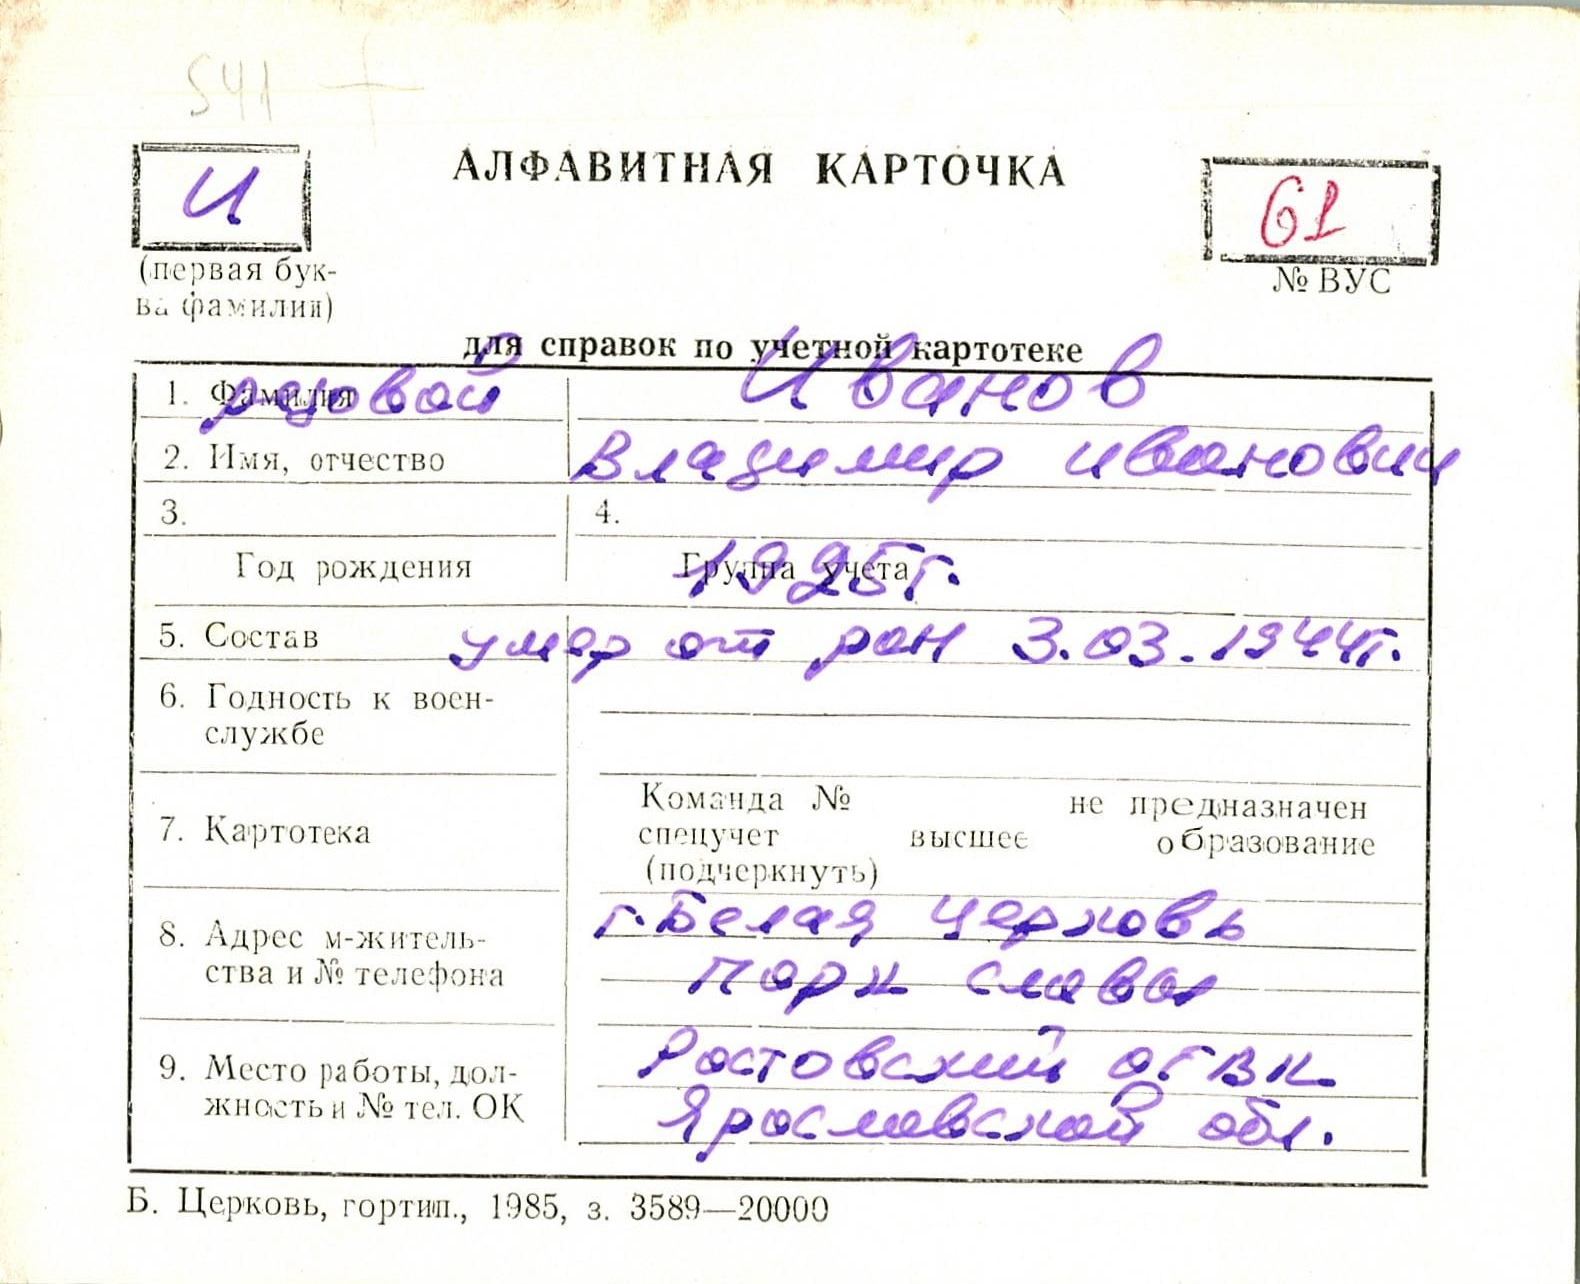 541
И
АЛФАВИТНАЯ КАРТОЧКА
61
(первая бук-
ва фамилии)
№ ВУС
для справок по учетной картотеке
1. Фамилия рядовой Иванов
2. Имя, отчество Владимир Иванович
3. 4.
Год рождения Группа учета 1925г.
5. Состав умер от ран 3.03.1944г.
6. Годность к воен-
службе
7. Картотека
Команда № не предназначен
спецучет высшее образование
(подчеркнуть)
8. Адрес м-житель-
ства и № телефона
г. Белая Церковь
Парк Славы
9. Место работы, дол-
жность и № тел. ОК
Ростовский ОГВК
Ярославской обл.
Б. Церковь, гортип., 1985, з. 3589—20000